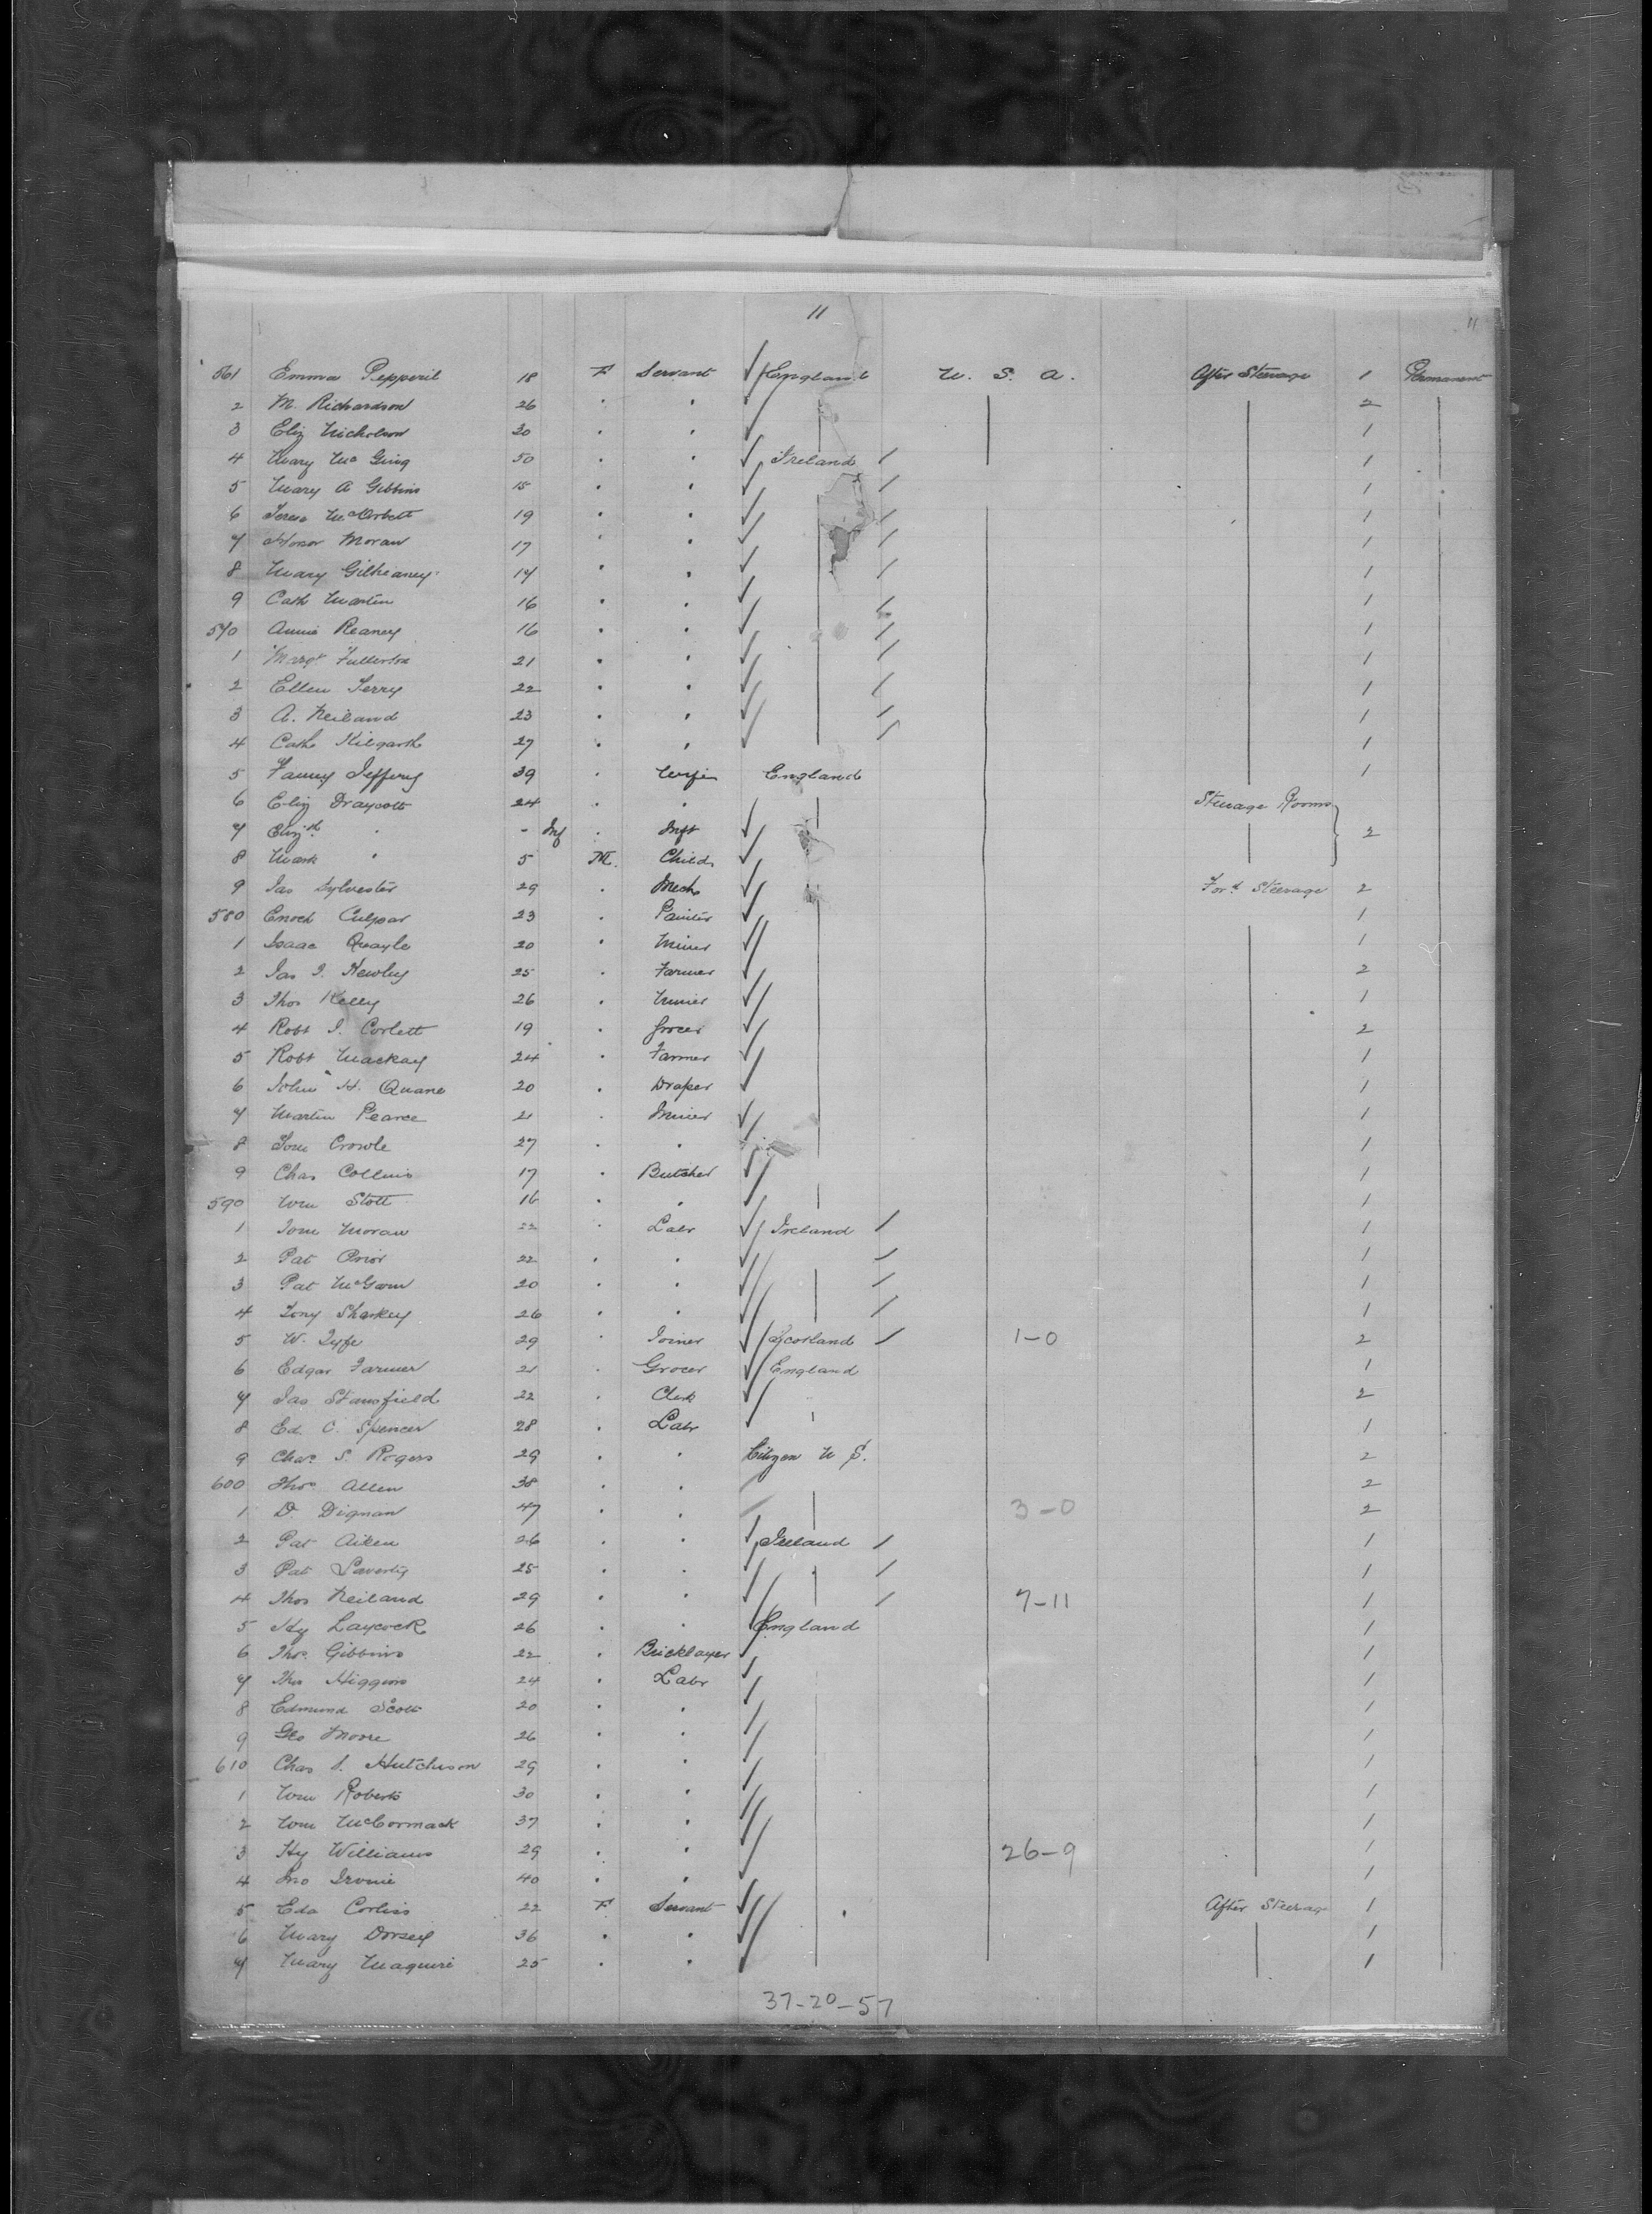 11
11
561 Emma Pepperil 18 F Servant England U. S. A. After Steerage 1 Permanent
2 M. Richardson 26 " " 2
3 Eliz Nicholson 30 " " 1
4 Mary Mc Ging 50 " " Ireland 1
5 Mary A Gibbins 15 " " 1
6 Teresa 19 " " 1
7 Honor Moran 17 " " 1
8 Mary Gilheaney 17 " " 1
9 Cath Martin 16 " " 1
570 Annie Reaney 16 " " 1
1 Margt Fullerton 21 " " 1
2 Ellen Terry 22 " " 1
3 A. Neiland 23 " " 1
4 Cath Kilgarth 27 " " 1
5 Fanny Jeffery 39 " Wife England 1
6 Eliz Draycott 24 " " Steerage Rooms
7 Elizth " - Inf " Inft 2
8 Mark " 5 M. Child
9 Jas Sylvester 29 " Mech Ford Steerage 2
580 Enoch Culpar 23 " Painter 1
1 Isaac Quayle 20 " Miner 1
2 Jas J. Kewley 25 " Farmer 2
3 Thos Kelly 26 " Miner 1
4 Robt J. Corlett 19 " Grocer 2
5 Robt Mackay 24 " Farmer 1
6 John H. Quane 20 " Draper 1
7 Martin Pearce 21 " Miner 1
8 Tom Crowle 27 " " 1
9 Chas Collins 17 " Butcher 1
590 Wm Stott 16 " " 1
1 Tom Moran 22 " Labr Ireland 1
2 Pat Prior 22 " " 1
3 Pat McGown 20 " " 1
4 Tony Sharkey 26 " " 1
5 W. Fyfe 29 " Joiner Scotland 1-0 2
6 Edgar Farmer 21 " Grocer England 1
7 Jas Stansfield 22 " Clerk 2
8 Ed. C. Spencer 28 " Labr 1
9 Chas S. Rogers 29 " " Citizen U S. 2
600 Thos Allen 38 " " 2
1 D. Dignan 47 " " 3-0 2
2 Pat Aiken 26 " " Ireland 1
3 Pat 25 " " 1
4 Thos Neiland 29 " " 7-11 1
5 Hy Laycock 26 " " England 1
6 Thos Gibbins 22 " Bricklayer 1
7 Thos Higgins 24 " Labr 1
8 Edmund Scott 20 " " 1
9 Geo Moore 26 " " 1
610 Chas S. Hutchison 29 " " 1
1 Wm Roberts 30 " " 1
2 Wm McCormack 37 " " 1
3 Hy Williams 29 " " 26-9 1
4 Jno Irvine 40 " " 1
5 Eda Corliss 22 F Servant After Steerage 1
6 Mary Dorsey 36 " " 1
7 Mary Maguire 25 " " 1
37-20-57